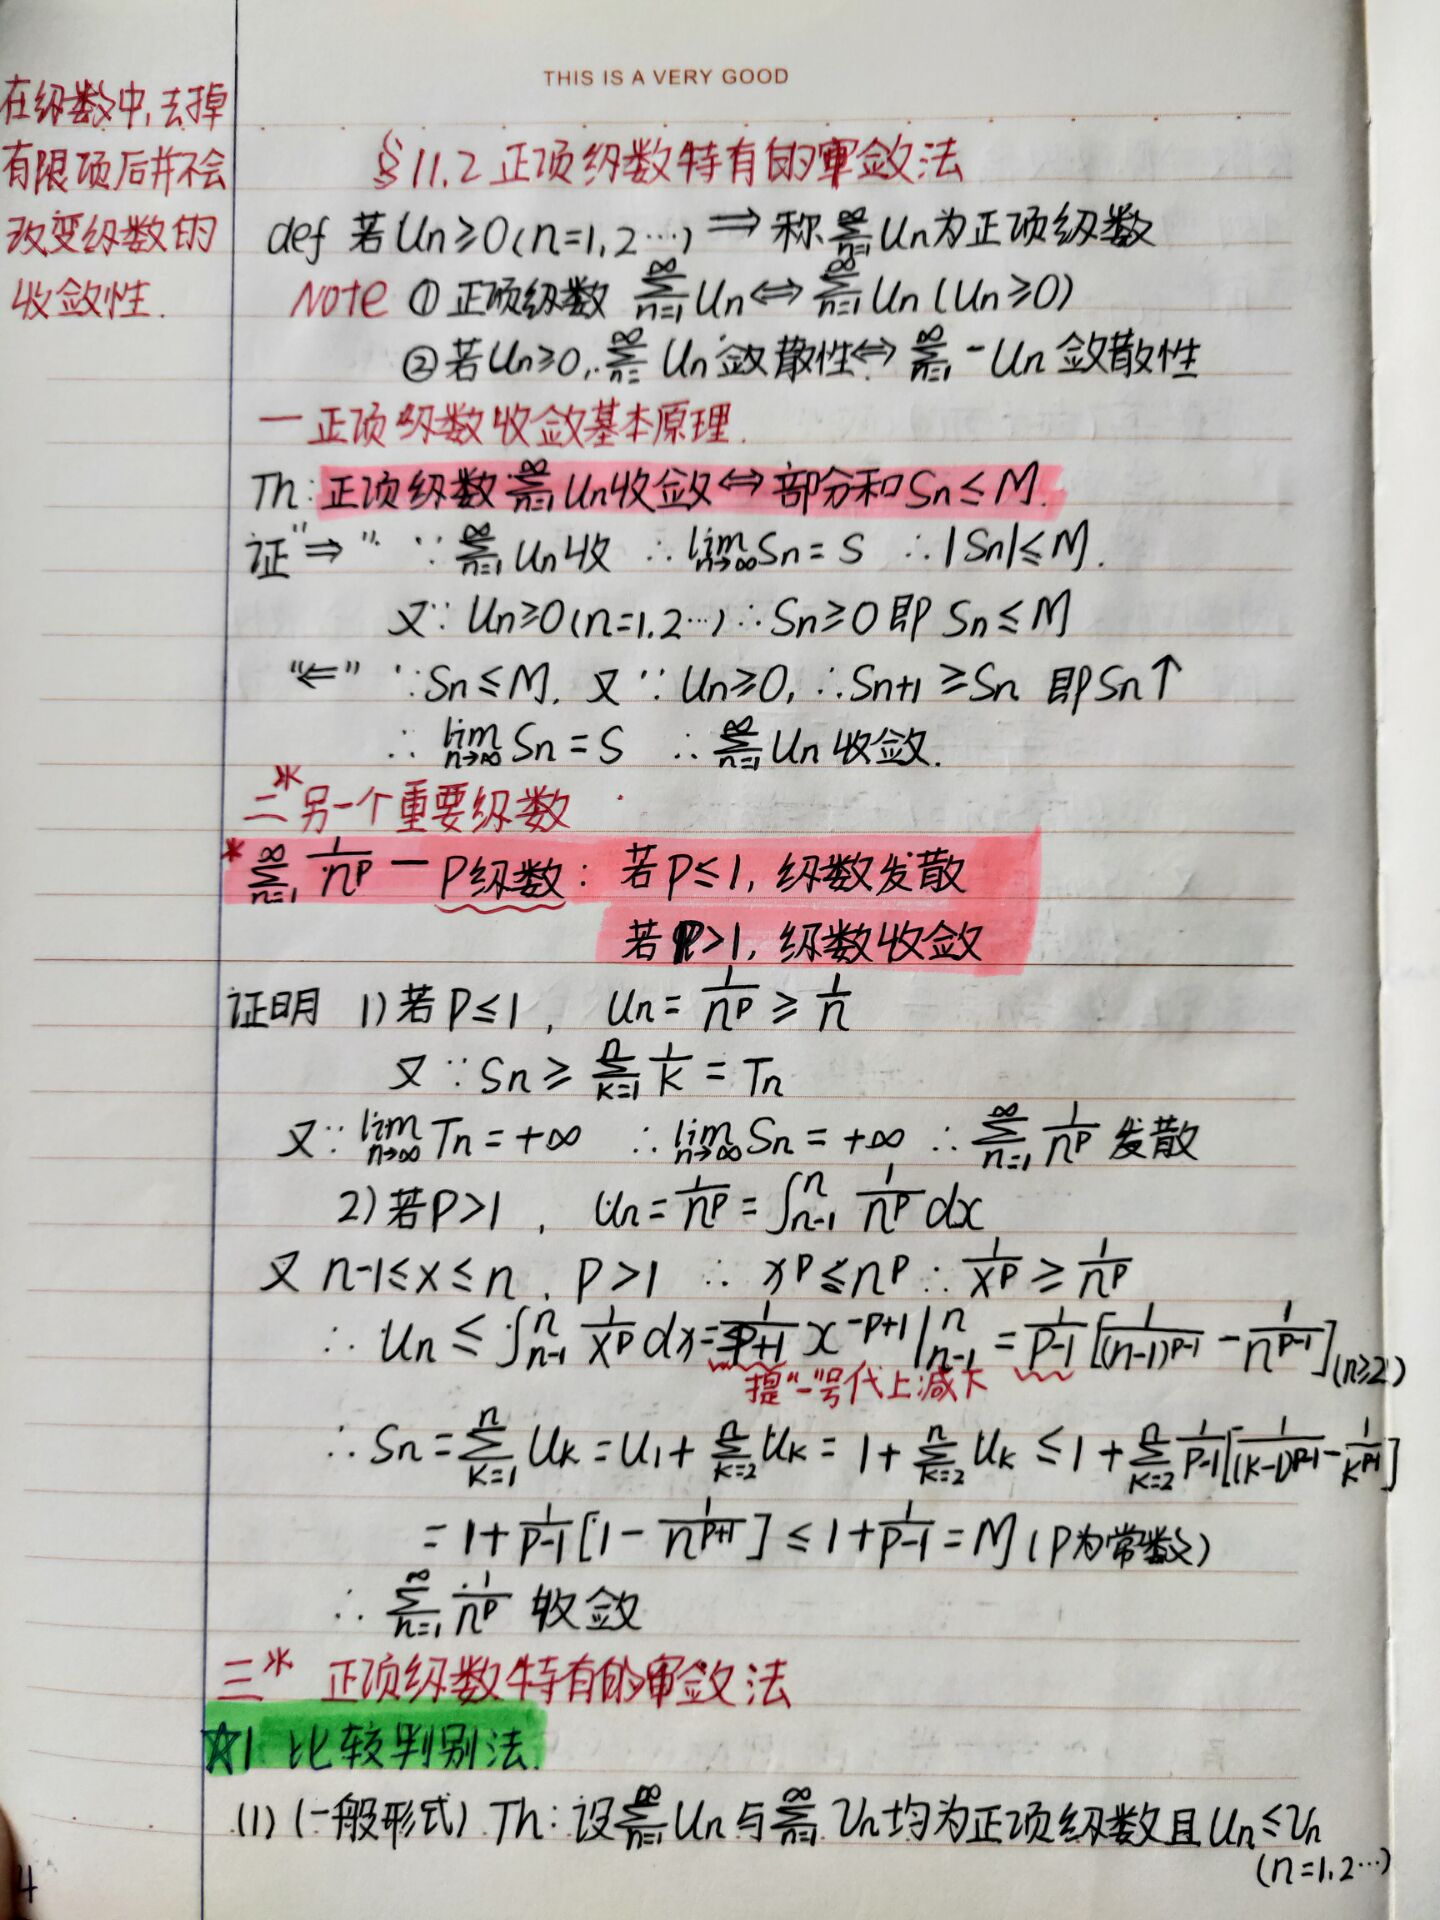 THIS IS A VERY GOOD
在级数中,去掉
有限项后并不会
改变级数的
收敛性.
§11.2 正项级数特有的审敛法
def 若 Un≥0(n=1,2…) ⇒ 称 ∑_{n=1}^{∞} Un 为正项级数
Note ① 正项级数 ∑_{n=1}^{∞} Un ⇔ ∑_{n=1}^{∞} Un (Un≥0)
② 若 Un≥0, ∑_{n=}^{∞} Un 敛散性 ⇔ ∑_{n=1}^{∞} -Un 敛散性
一 正项级数收敛基本原理.
Th: 正项级数 ∑_{n=1}^{∞} Un 收敛 ⇔ 部分和 Sn ≤ M.
证 "⇒" ∵ ∑_{n=1}^{∞} Un 收 ∴ lim_{n→∞} Sn = S ∴ |Sn| ≤ M.
又∵ Un≥0(n=1,2…) ∴ Sn≥0 即 Sn ≤ M
"⇐" ∵ Sn ≤ M, 又∵ Un≥0, ∴ Sn+1 ≥ Sn 即 Sn↑
∴ lim_{n→∞} Sn = S ∴ ∑_{n=1}^{∞} Un 收敛.
二* 另一个重要级数
* ∑_{n=1}^{∞} 1/n^p — P级数: 若 P≤1, 级数发散
若 P>1, 级数收敛
证明 1) 若 P≤1, Un = 1/n^p ≥ 1/n
又∵ Sn ≥ ∑_{k=1}^{n} 1/k = Tn
又∵ lim_{n→∞} Tn = +∞ ∴ lim_{n→∞} Sn = +∞ ∴ ∑_{n=1}^{∞} 1/n^p 发散
2) 若 P>1, Un = 1/n^p = ∫_{n-1}^{n} 1/n^p dx
又 n-1≤x≤n, P>1 ∴ x^p ≤ n^p ∴ 1/x^p ≥ 1/n^p
∴ Un ≤ ∫_{n-1}^{n} 1/x^p dx = 1/(-p+1) x^{-p+1} |_{n-1}^{n} = 1/(p-1) [1/(n-1)^{p-1} - 1/n^{p-1}] (n≥2)
提"-"号代上减下
∴ Sn = ∑_{k=1}^{n} Uk = U1 + ∑_{k=2}^{n} Uk = 1 + ∑_{k=2}^{n} Uk ≤ 1 + ∑_{k=2}^{n} 1/(p-1) [1/(k-1)^{p-1} - 1/k^{p-1}]
= 1 + 1/(p-1) [1 - 1/n^{p+1}] ≤ 1 + 1/(p-1) = M (P为常数)
∴ ∑_{n=1}^{∞} 1/n^p 收敛
三* 正项级数特有的审敛法
☆1 比较判别法.
(1) (一般形式) Th: 设 ∑_{n=1}^{∞} Un 与 ∑_{n=1}^{∞} Vn 均为正项级数且 Un ≤ Vn
(n=1,2…)
4